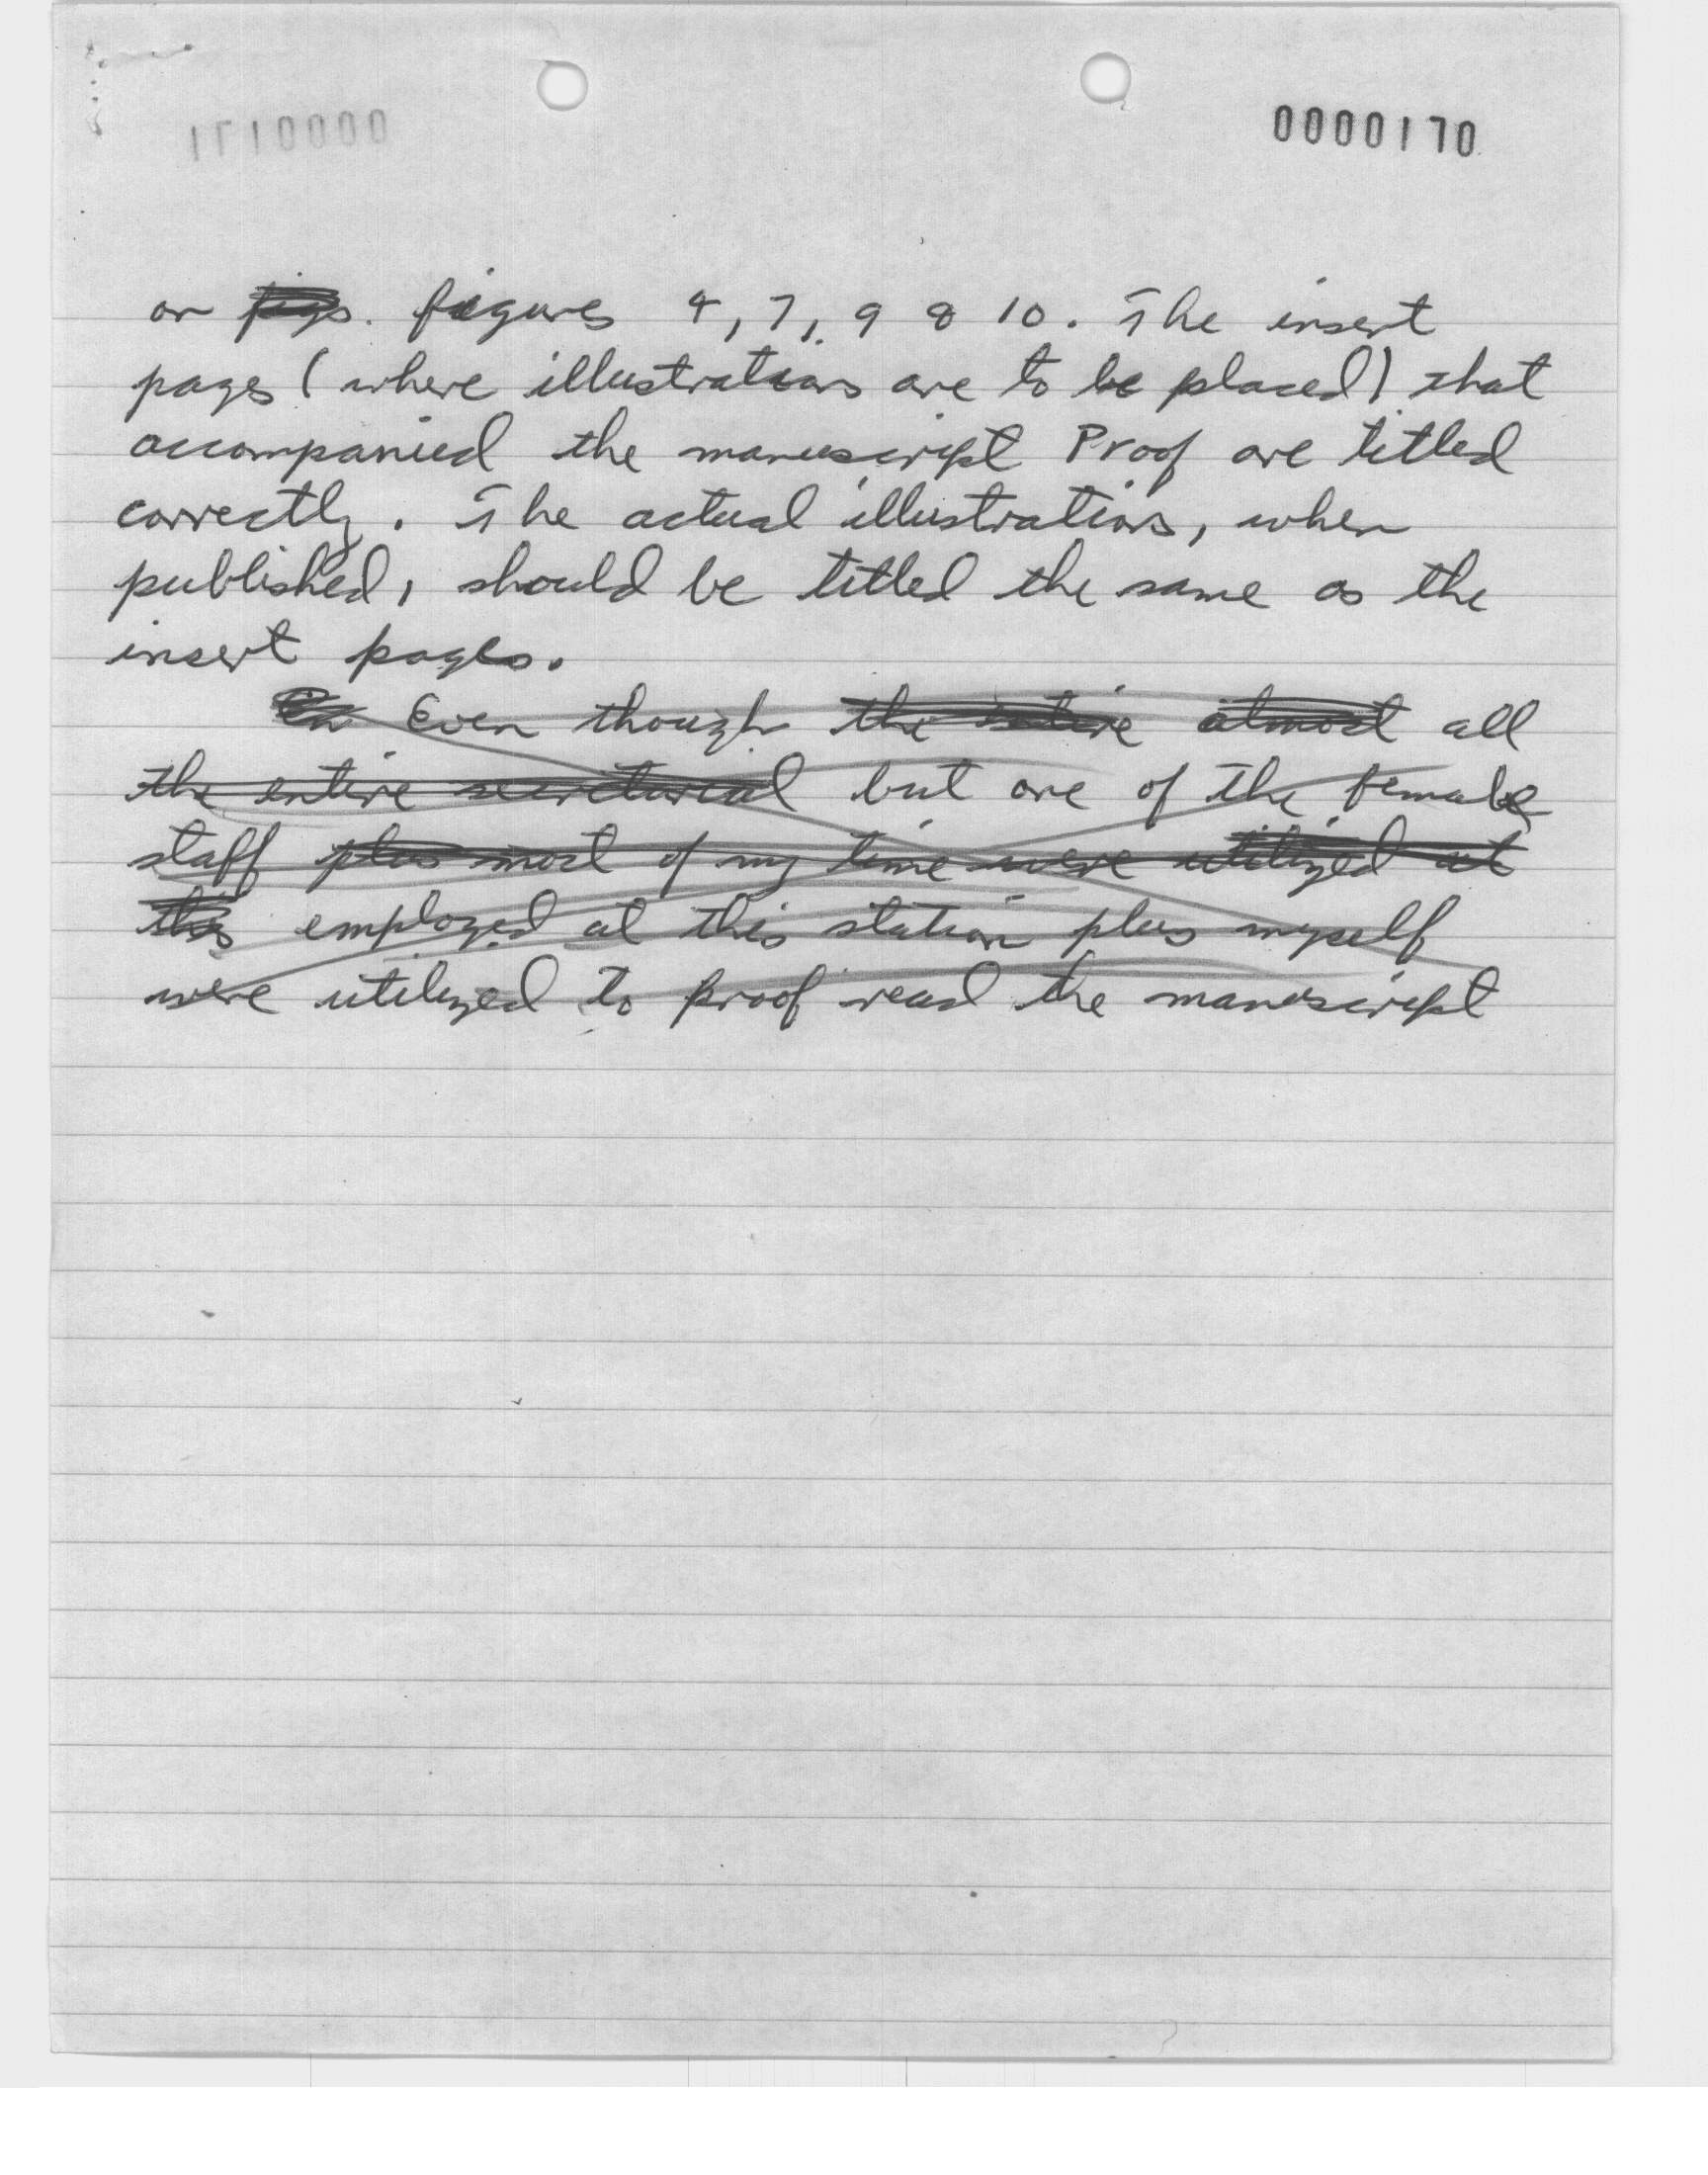 0000170
on figs. figures 4, 7, 9 & 10. The insert
pages (where illustrations are to be placed) that
accompanied the manuscript Proof are titled
correctly. The actual illustrations, when
published, should be titled the same as the
insert pages.
Even though the entire almost all
the entire secretarial but one of the female
staff plus most of my time were utilized at
this employed at this station plus myself
were utilized to proof read the manuscript